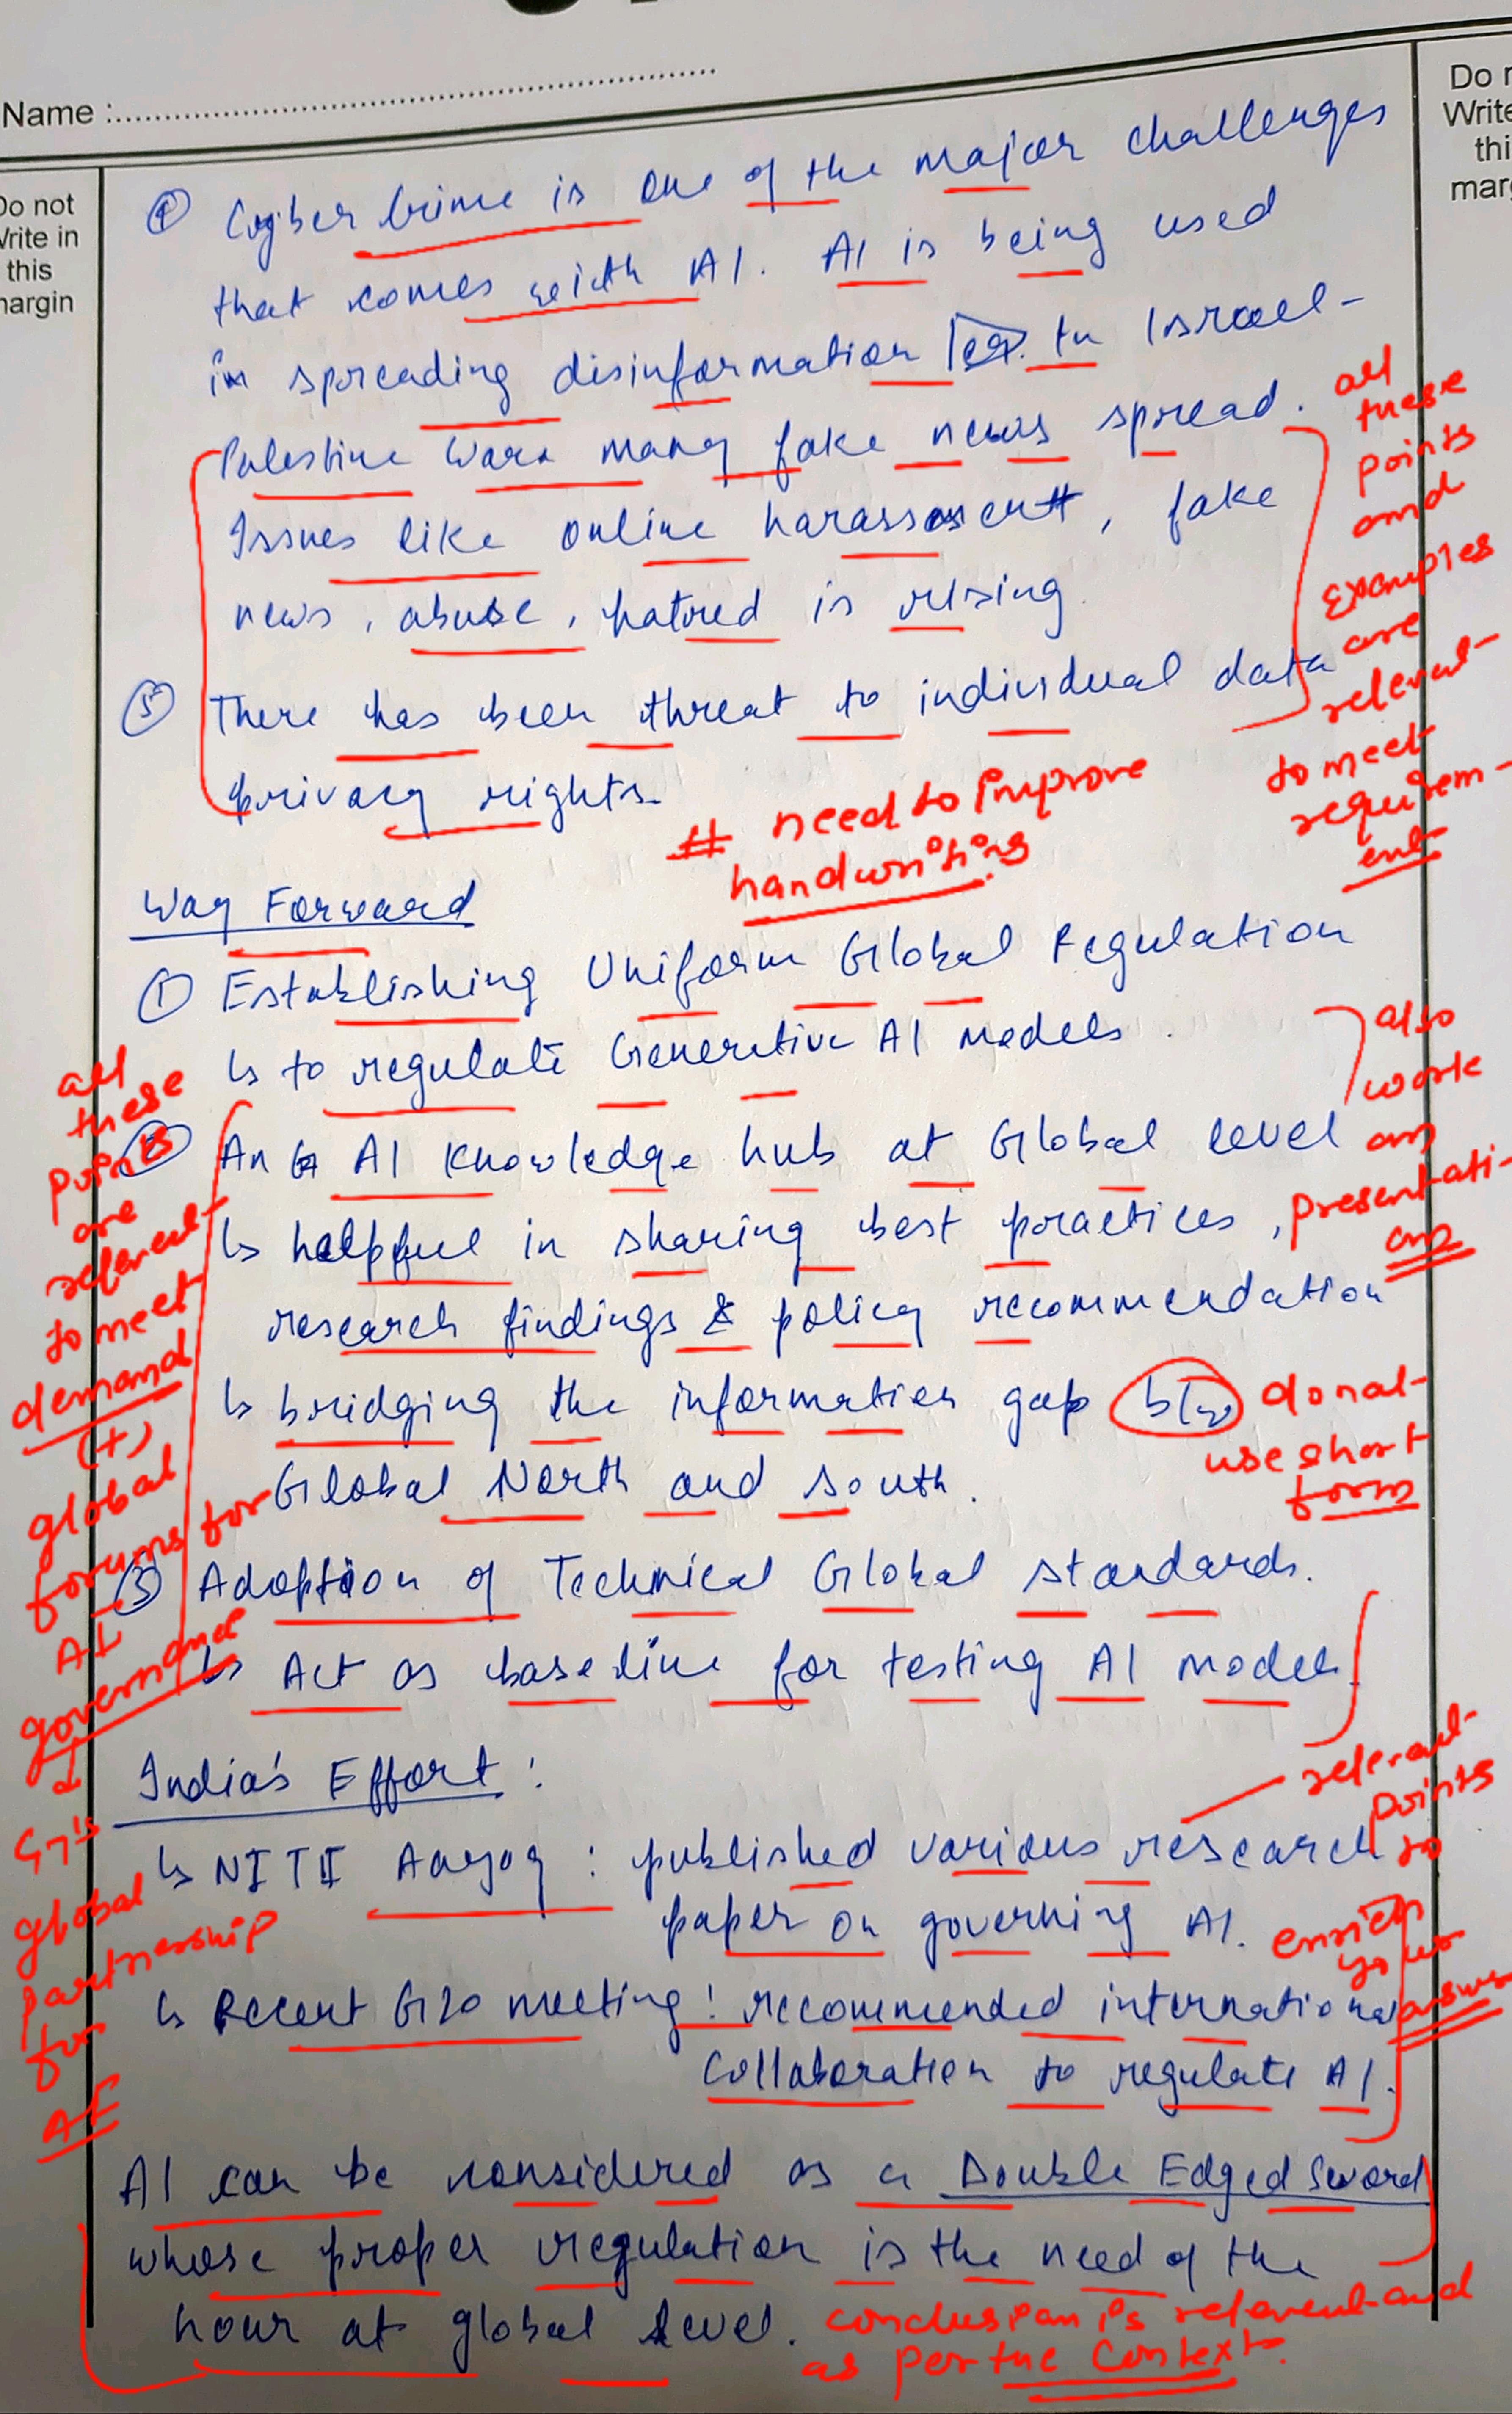 Name :
Do not
Write in
this
margin
Do n
Write
thi
marg
④ Cyber Crime is one of the major challenges
that comes with AI. AI is being used
in spreading disinformation eg. In Israel-
Palestine War many fake news spread.
Issues like online harassment, fake
news, abuse, hatred is rising.
⑤ There has been threat to individual data
privacy rights.
all
these
points
and
examples
are
relevant
to meet
requirem-
ent
# need to improve
handwriting
Way Forward
① Establishing Uniform Global Regulation
↳ to regulate Generative AI models.
② An AI Knowledge hub at Global level
↳ helpful in sharing best practices,
research findings & policy recommendation
↳ bridging the information gap b/w
Global North and South.
also
work
on
presentati-
on
do not
use short
form
③ Adoption of Technical Global standards.
↳ Act as baseline for testing AI models
all
these
points
are
relevant
to meet
demand
(+)
global
forums for
AI
governance
↓
G7's
global
partnership
for
AI
India's Effort :
↳ NITI Aayog : published various research
paper on governing AI.
↳ Recent G20 meeting : recommended international
collaboration to regulate AI.
relevant
points
to
enrich
your
answer
AI can be considered as a Double Edged Sword
whose proper regulation is the need of the
hour at global level.
conclusion is relevant and
as per the context.